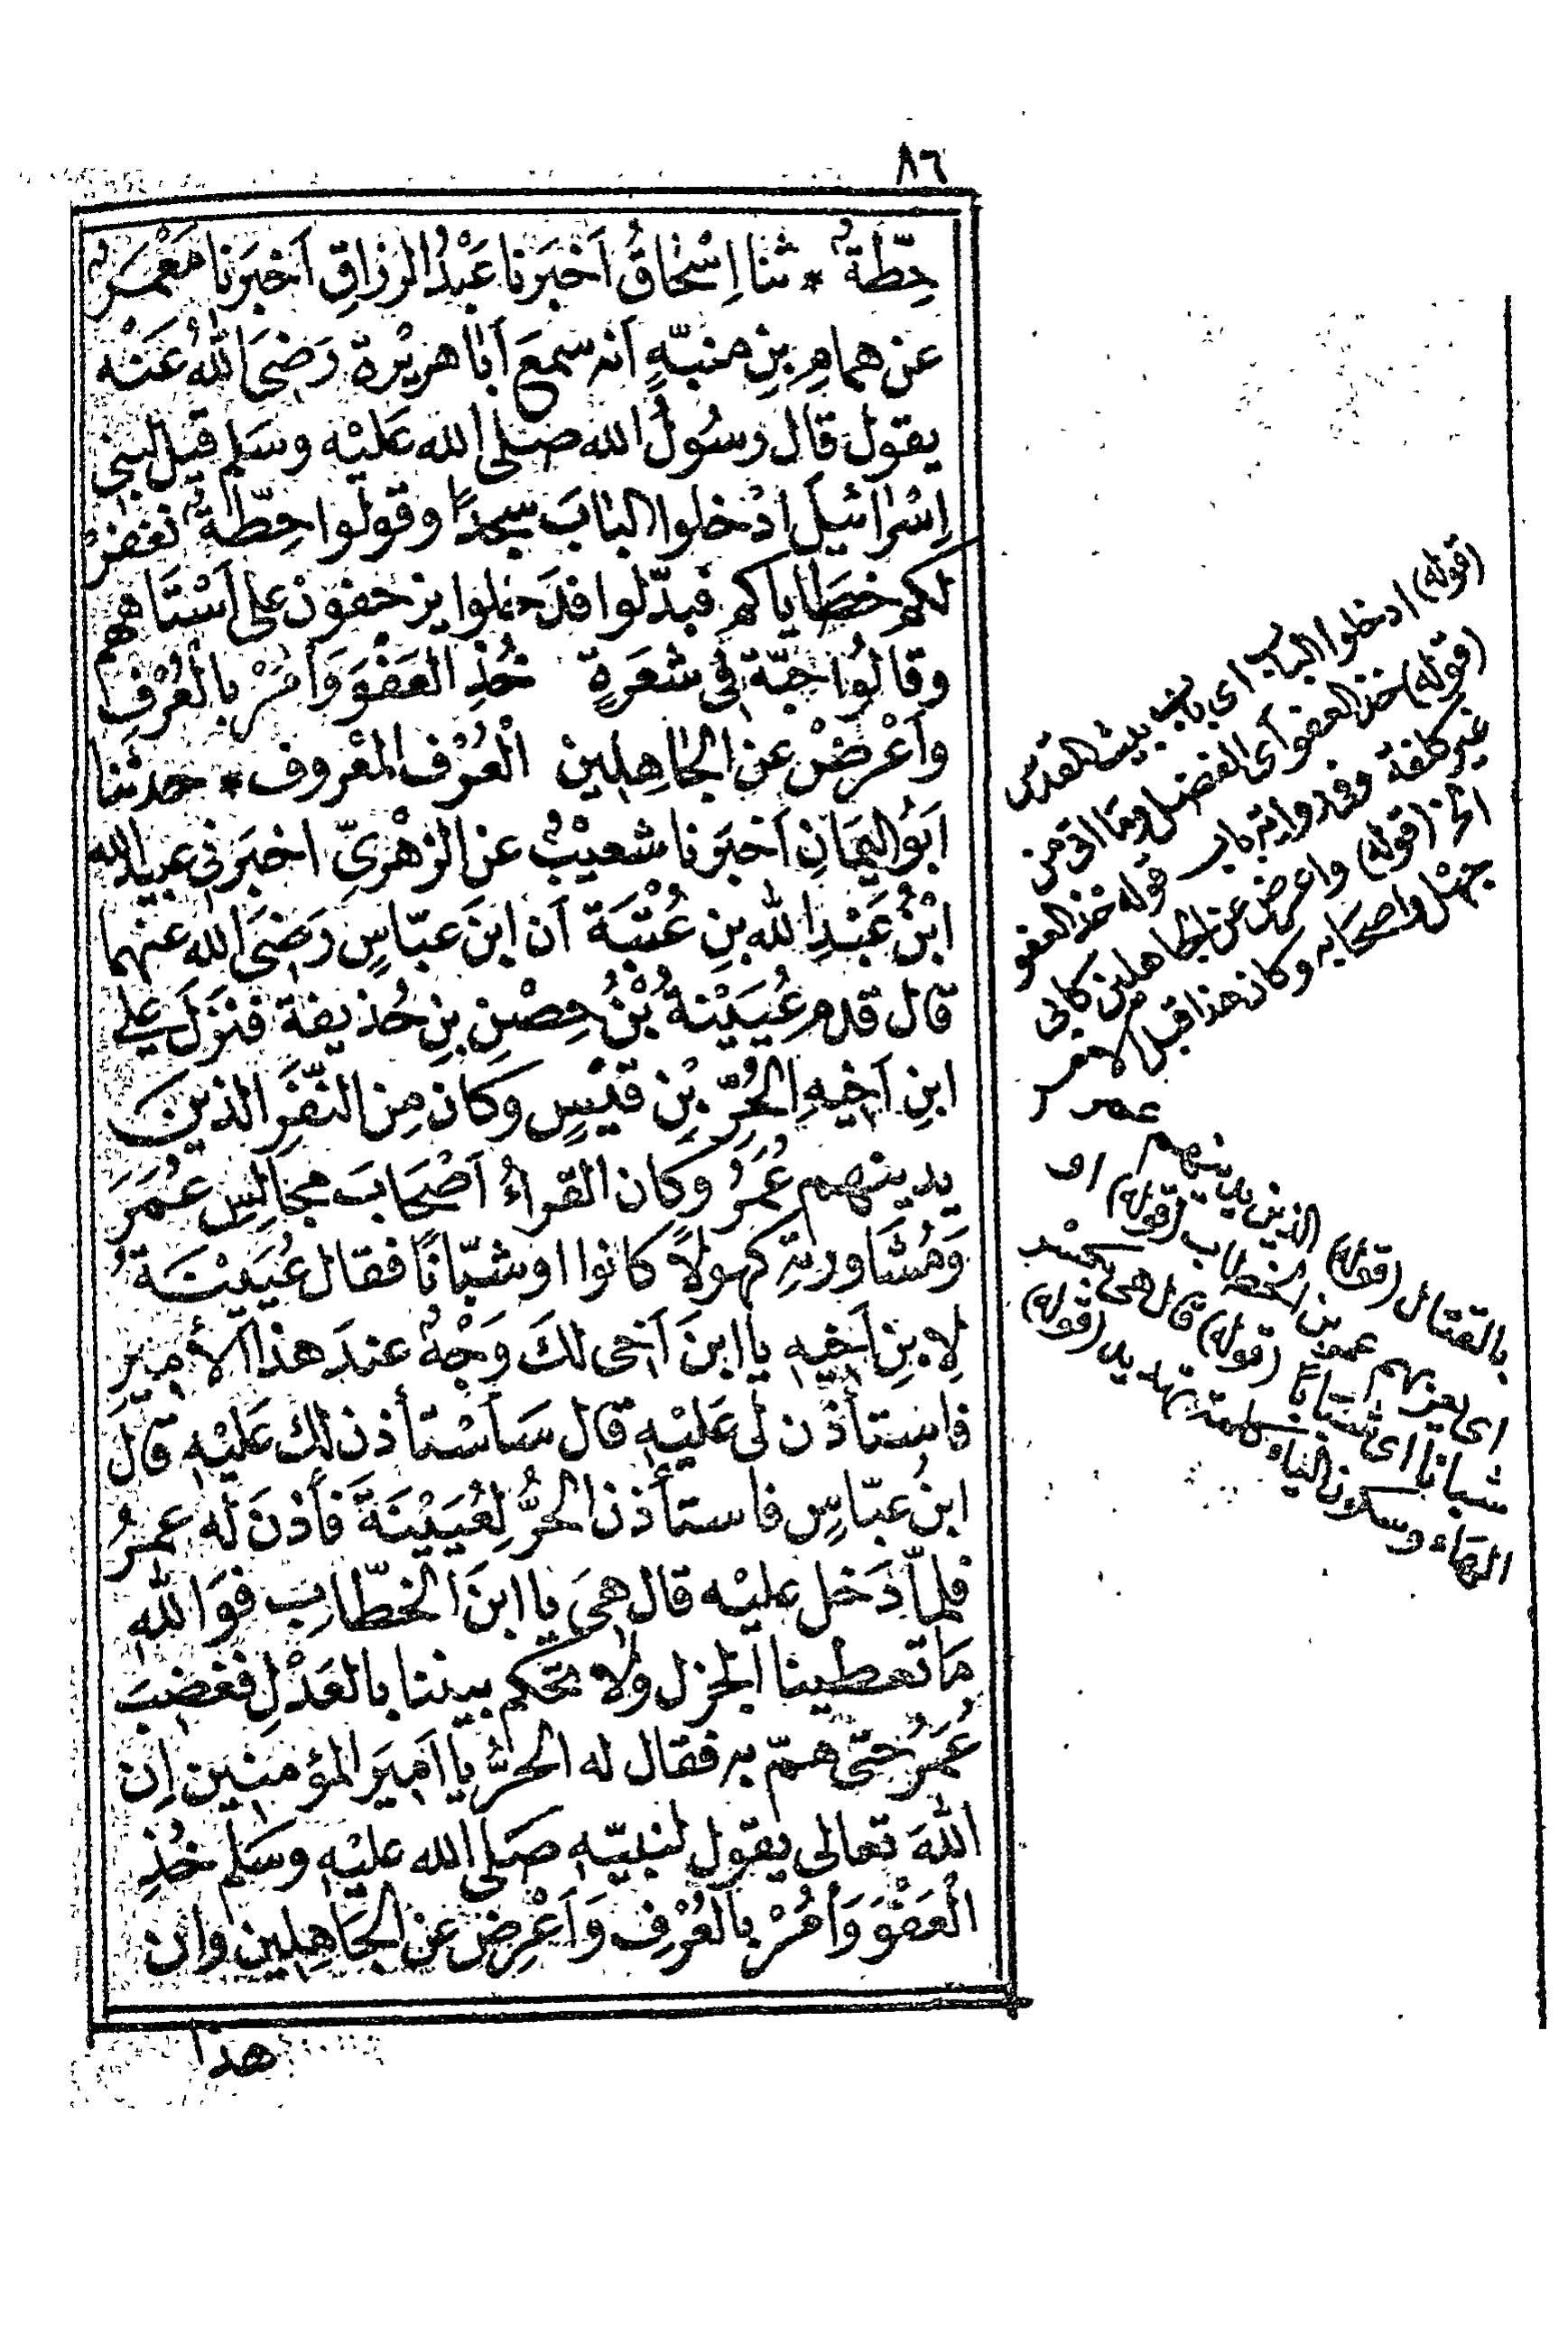 ٨٦
حِطّةٌ * ثنا اِسْحٰاقُ اَخبَرنا عَبْدُ الرزاقِ اَخبَرنا مَعْمَرٌ
عن همامِ بنِ منبّهٍ اَنه سمعَ اَبا هريْرة رَضىَ اللهُ عَنْه
يقول قال رسُولُ الله صلى الله عَليْه وسَلم قيل لبنى
اِسْرائيلَ ادْخلوا البابَ سجداً وقولوا حِطّةٌ نغفرْ
لكم خطَاياكم فبدّلوا فدَخلوا يزحفون على اَسْتَاههم
وقالُوا حبّة فى شعَرَةٍ خُذِ العَفْوَ وَأمُرْ بالعُرْفِ
وأعْرضْ عن الجاهِلين العُرْف المعْروف * حدثنا
ابَوُ اليمَانِ اَخبَرنا شعيْبٌ عن الزهْرىّ اخبَرنى عبيد الله
ابْنُ عَبْدِ الله بنِ عُتْبَة اَن ابنَ عبّاسٍ رَضىَ الله عنهما
قال قدم عُيَيْنةُ بْنُ حِصْنِ بنِ حُذيفة فنزَلَ على
ابنِ اَخيهِ الحُرِّ بْنِ قيْسٍ وَكان مِن النّفَرِ الذين
يدينهم عُمَرُ وكان القراءُ اَصْحَابَ مجالِسِ عُمَرَ
وَمُشَاورتهِ كهولاً كانوا اوشبّانًا فقال عُيَيْنَةُ
لِابنِ اَخيهِ يا ابنَ اَخى لكَ وَجْهٌ عندَ هذا الأميرِ
فاستأذن لى عَليْهِ قال سَاَسْتأذن لك عَليْهِ قال
ابنُ عبّاسٍ فاستأذن الحُرُّ لِعُيَيْنَةَ فأذنَ له عمرُ
فلمّا دَخل عليْه قال هىَ يا ابنَ الخطّابِ فوَالله
مَا تعطينا الجزل ولا تحكم بيننا بالعَدْلِ فغضبَ
عُمَرُ حتى همّ به فقال له الحرُّ يا اَميَر المؤمنين اِن
اللهَ تعالى يقول لنبيّه صَلى الله عليْهِ وسَلم خُذِ
العَفْوَ وَأمُرْ بالعُرْفِ وَأعْرِض عن الجَاهِلين وان
هذا
(قوله) ادخلوا الباب اى باب بيت المقدس
(قوله) خذ العفو أى الفضل وما اتى من
غير كلفة وفى رواية باب قوله خذ العفو
الخ (قوله) واعرض عن الجاهلين كابى
جهل واصحابه وكان هذا قبل الامر
بالقتال (قوله) الذين يدينهم عمر
اى يعزيهم عمر بن الخطاب (قوله) او
شبانا اى شبابا (قوله) قال هى بكسر
الهاء وسكون الياء كلمة تهديد (قوله)